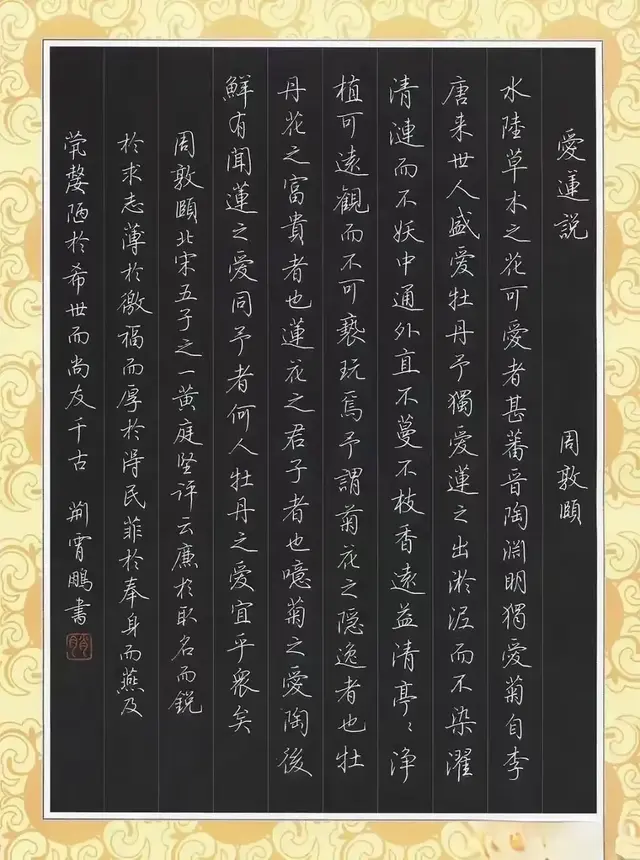 愛蓮説 周敦頤
水陸草木之花可愛者甚蕃晉陶淵明獨愛菊自李
唐来世人盛愛牡丹予獨愛蓮之出淤泥而不染濯
清漣而不妖中通外直不蔓不枝香遠益清亭〻浄
植可遠觀而不可褻玩焉予謂菊花之隱逸者也牡
丹花之富貴者也蓮花之君子者也噫菊之愛陶後
鮮有聞蓮之愛同予者何人牡丹之愛宜乎衆矣
周敦頤北宋五子之一黄庭坚评云廉於取名而鋭
於求志薄於徼福而厚於得民菲於奉身而燕及
茕嫠陋於希世而尚友千古 荊霄鵬書